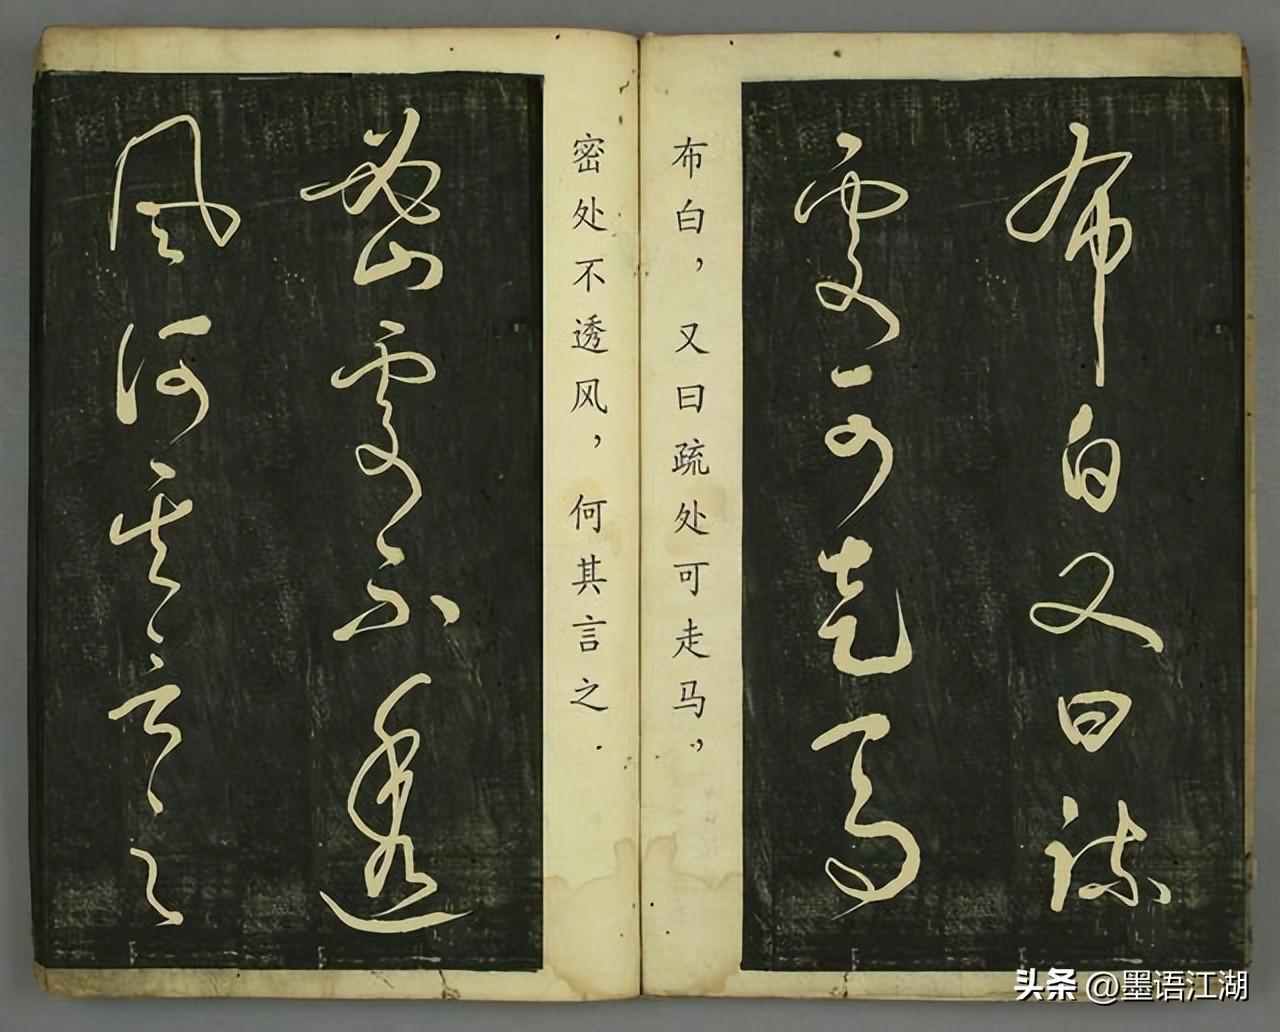 布白又曰疏
处可走马
布白，又曰疏处可走马，
密处不透风，何其言之．
密处不透
风何其言之
头条 @墨语江湖